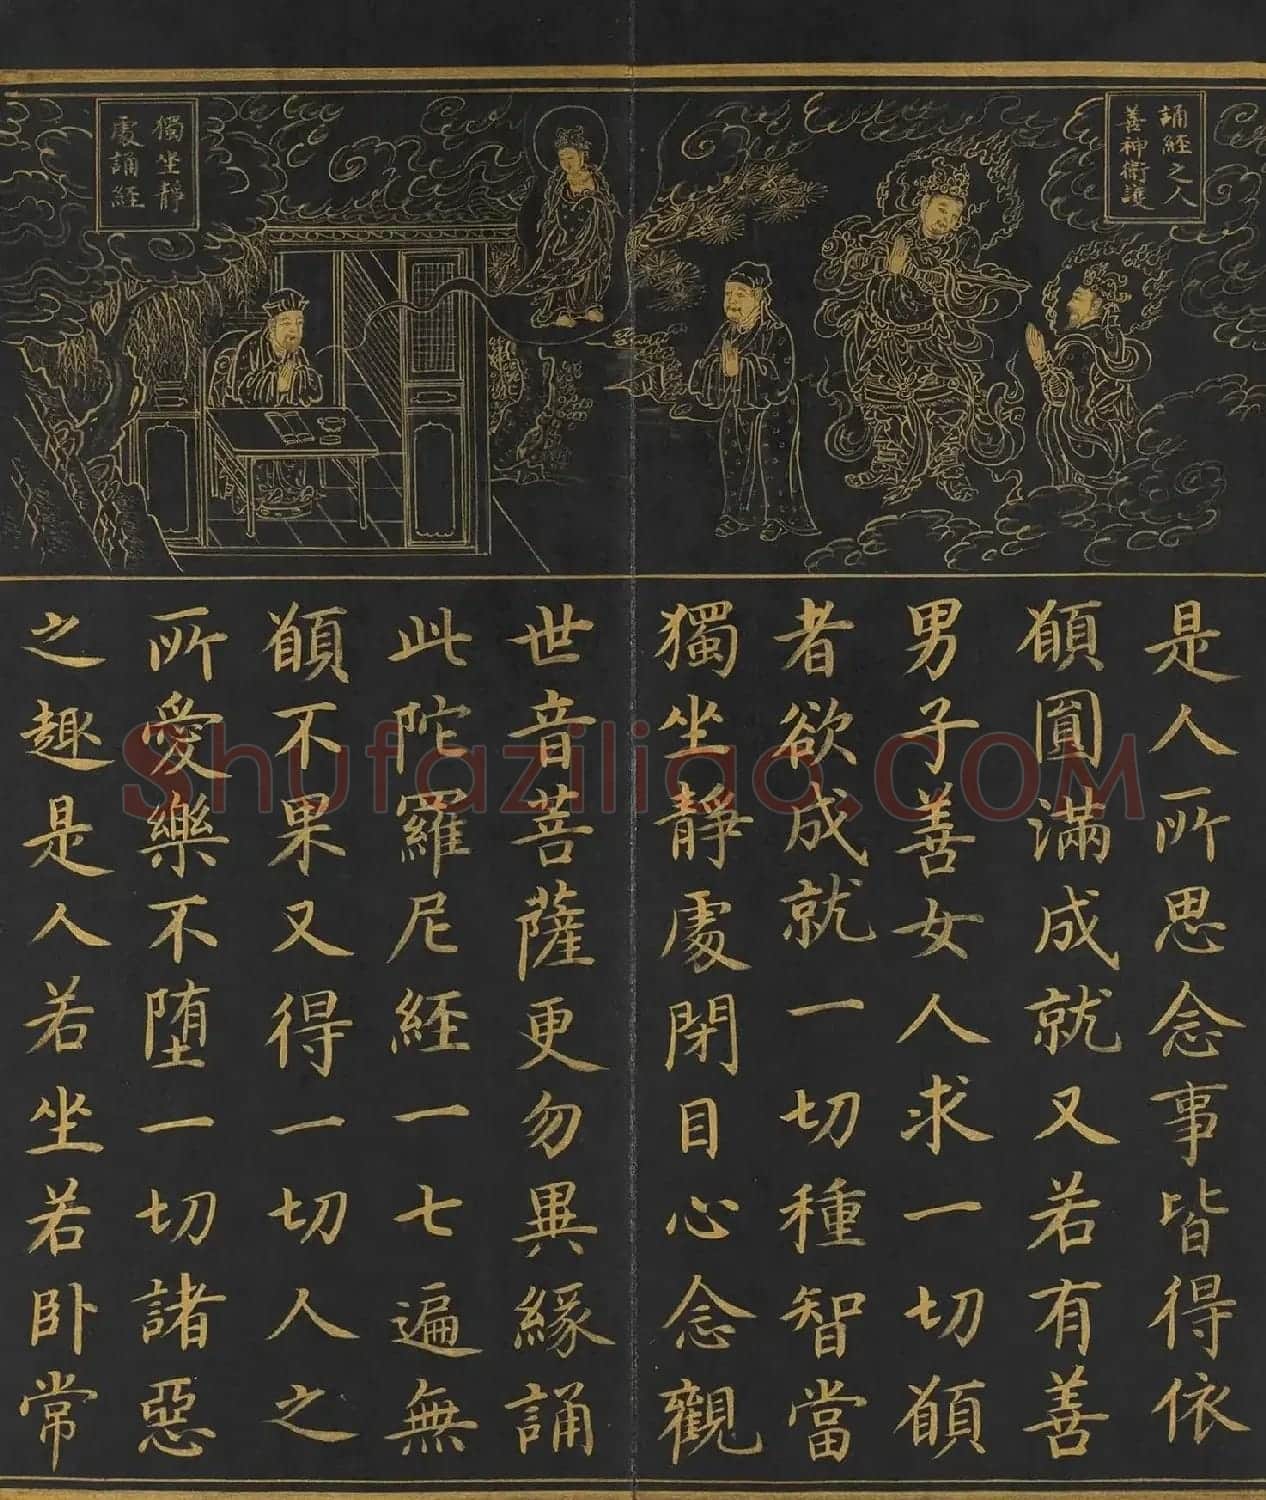 誦經之人
善神衛護
獨坐靜
處誦經
是人所思念事皆得依
願圓滿成就又若有善
男子善女人求一切願
者欲成就一切種智當
獨坐靜處閉目心念觀
世音菩薩更勿異緣誦
此陀羅尼經一七遍無
願不果又得一切人之
所愛樂不墮一切諸惡
之趣是人若坐若卧常
Shufaziliao.COM